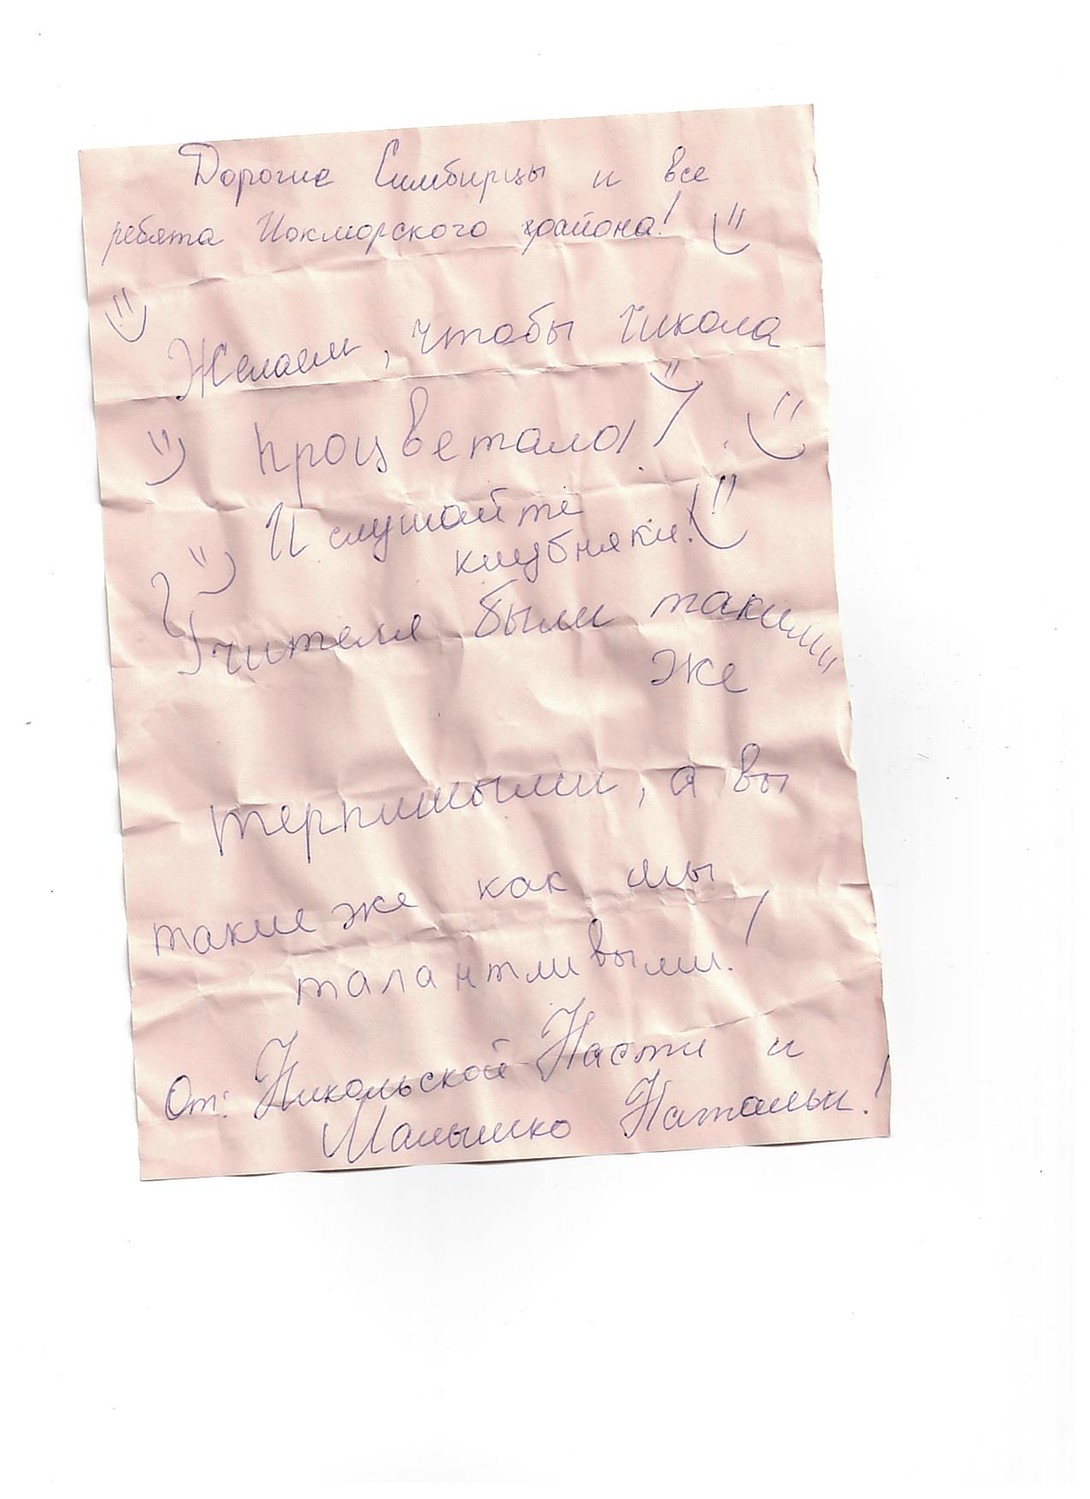 Дорогие Симбирцы и все
ребята Иокморского района!
Желаем, чтобы школа
процветала!
И слушайте
клубняки!
Учителя были такими
же
терпимыми, а вы
такие же как мы
талантливыми!
От: Никольской Насти и
Малышко Натальи!